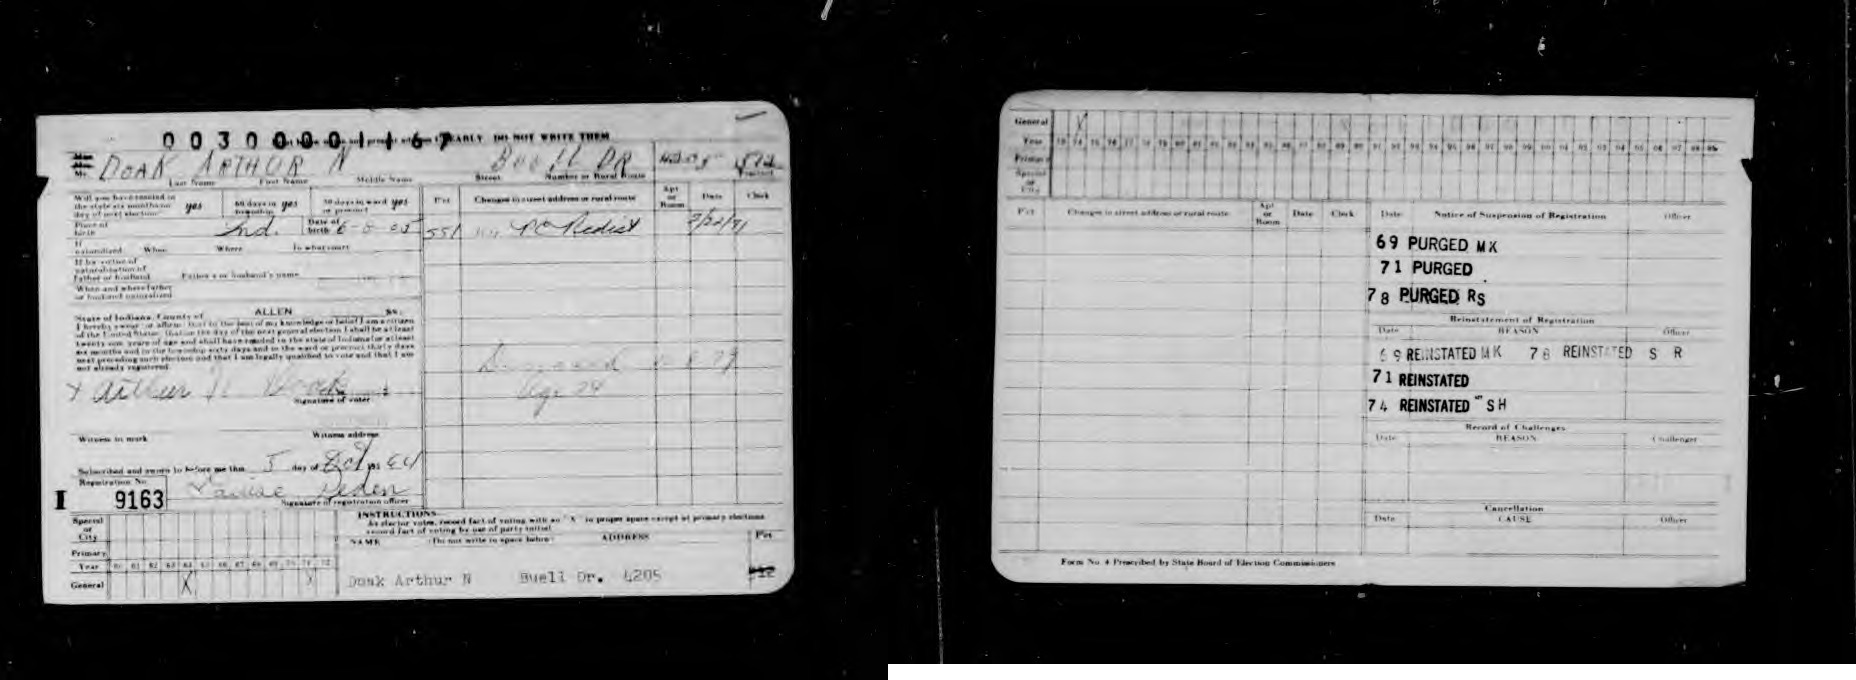 0030000 1167 EARLY DO NOT WRITE THEM
DOAK ARTHUR N
Last Name First Name Middle Name Street Number or Rural Route Precinct
Will you have resided in the state six months on day of next election yes 60 days in township yes 30 days in ward or precinct yes
Pct Changes in street address or rural route Apt or Room Date Clerk
Place of birth Ind. Date of birth
551 Redist
If naturalized When Where In what court
If by virtue of naturalization of father or husband Father's or husband's name
When and where father or husband naturalized
State of Indiana, County of ALLEN ss:
I hereby swear (or affirm) that to the best of my knowledge or belief I am a citizen
of the United States; that on the day of the next general election I shall be at least
twenty one years of age and shall have resided in the state of Indiana for at least
six months and in the township sixty days and in the ward or precinct thirty days
next preceding such election and that I am legally qualified to vote and that I am
not already registered.
Deceased
Age 74
x Arthur N. Doak
Signature of voter
Witness to mark Witness address
Subscribed and sworn to before me this 5 day of Oct 19 64
Registration No.
I 9163 Louise
Signature of registration officer
Special or City
INSTRUCTIONS
As elector votes, record fact of voting with an "X" in proper space except at primary elections
record fact of voting by use of party initial
NAME (Do not write in space below) ADDRESS Pct
Primary
Year 60 61 62 63 64 65 66 67 68 69 70 71 72
General X
Doak Arthur N Buell Dr. 4205
General X
Year 73 74 75 76 77 78 79 80 81 82 83 84 85 86 87 88 89 90 91 92 93 94 95 96 97 98 99 00 01 02 03 04 05 06 07 08 09
Primary
Special or City
Pct Changes in street address or rural route Apt or Room Date Clerk Date Notice of Suspension of Registration Officer
69 PURGED MK
71 PURGED
78 PURGED RS
Reinstatement of Registration
Date REASON Officer
69 REINSTATED MK 78 REINSTATED S R
71 REINSTATED
74 REINSTATED SH
Record of Challenges
Date REASON Challenger
Cancellation
Date CAUSE Officer
Form No. 4 Prescribed by State Board of Election Commissioners